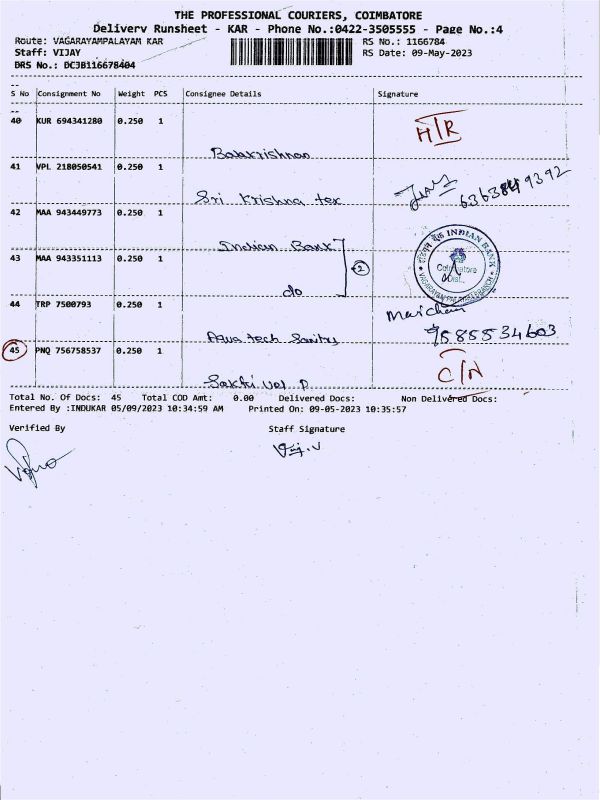 THE PROFESSIONAL COURIERS, COIMBATORE
Delivery Runsheet - KAR - Phone No.:0422-3505555 - Page No.:4
Route: VAGARAYAMPALAYAM KAR RS No.: 1166784
Staff: VIJAY RS Date: 09-May-2023
DRS No.: DCJB116678404
S No Consignment No Weight PCS Consignee Details Signature
40 KUR 694341280 0.250 1 H/R
Balakrishnan
41 VPL 218050541 0.250 1
Sri Krishna tex
42 MAA 943449773 0.250 1
Indian Bank
43 MAA 943351113 0.250 1 2
do
INDIAN BANK
Coimbatore
Dist.
44 TRP 7500793 0.250 1
Aqua tech Sanity 9585534603
45 PNQ 756758537 0.250 1 C/N
Sakthi vel P
Total No. Of Docs: 45 Total COD Amt: 0.00 Delivered Docs: Non Delivered Docs:
Entered By :INDUKAR 05/09/2023 10:34:59 AM Printed On: 09-05-2023 10:35:57
Verified By Staff Signature